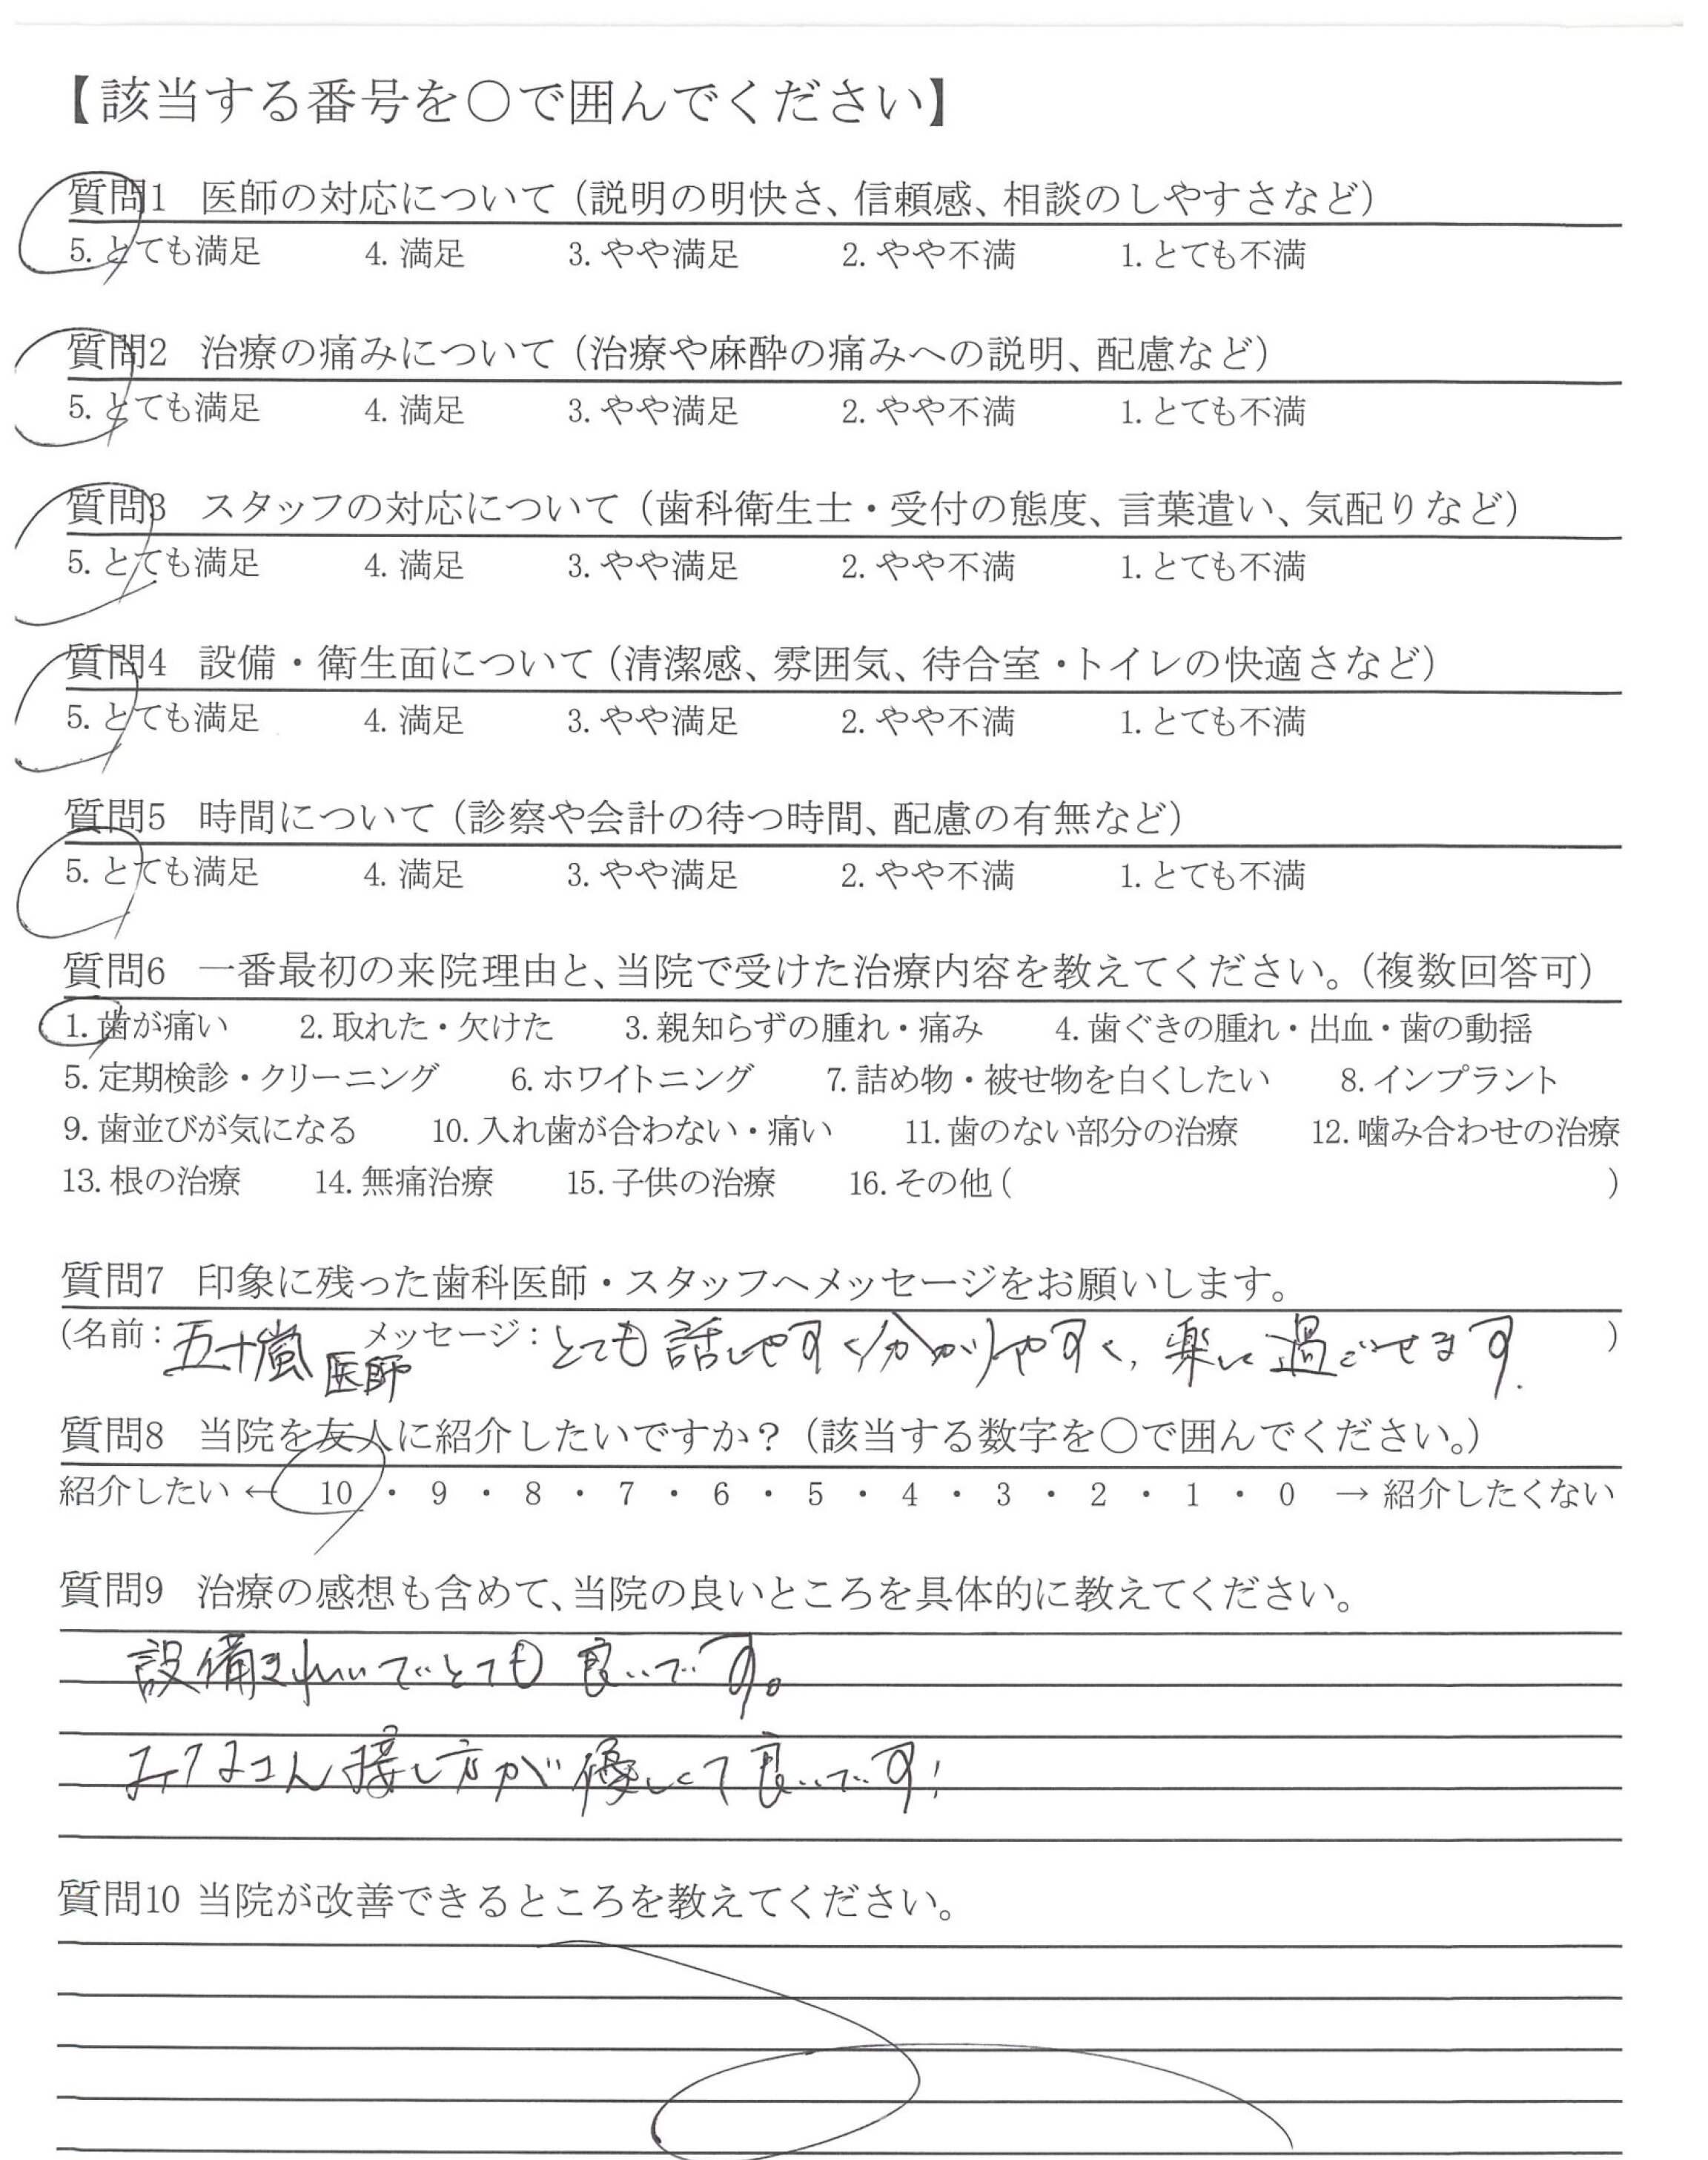 【該当する番号を〇で囲んでください】
質問1 医師の対応について（説明の明快さ、信頼感、相談のしやすさなど）
5. とても満足 4. 満足 3. やや満足 2. やや不満 1. とても不満
質問2 治療の痛みについて（治療や麻酔の痛みへの説明、配慮など）
5. とても満足 4. 満足 3. やや満足 2. やや不満 1. とても不満
質問3 スタッフの対応について（歯科衛生士・受付の態度、言葉遣い、気配りなど）
5. とても満足 4. 満足 3. やや満足 2. やや不満 1. とても不満
質問4 設備・衛生面について（清潔感、雰囲気、待合室・トイレの快適さなど）
5. とても満足 4. 満足 3. やや満足 2. やや不満 1. とても不満
質問5 時間について（診察や会計の待つ時間、配慮の有無など）
5. とても満足 4. 満足 3. やや満足 2. やや不満 1. とても不満
質問6 一番最初の来院理由と、当院で受けた治療内容を教えてください。（複数回答可）
1. 歯が痛い 2. 取れた・欠けた 3. 親知らずの腫れ・痛み 4. 歯ぐきの腫れ・出血・歯の動揺
5. 定期検診・クリーニング 6. ホワイトニング 7. 詰め物・被せ物を白くしたい 8. インプラント
9. 歯並びが気になる 10. 入れ歯が合わない・痛い 11. 歯のない部分の治療 12. 噛み合わせの治療
13. 根の治療 14. 無痛治療 15. 子供の治療 16. その他（ ）
質問7 印象に残った歯科医師・スタッフへメッセージをお願いします。
（名前：五十嵐医師 メッセージ：とても話しやすく分かりやすく、楽に過ごせます. ）
質問8 当院を友人に紹介したいですか？（該当する数字を〇で囲んでください。）
紹介したい ← 10 ・ 9 ・ 8 ・ 7 ・ 6 ・ 5 ・ 4 ・ 3 ・ 2 ・ 1 ・ 0 → 紹介したくない
質問9 治療の感想も含めて、当院の良いところを具体的に教えてください。
設備きれいでとても良いです。
みなさん接し方が優しくて良いです!
質問10 当院が改善できるところを教えてください。